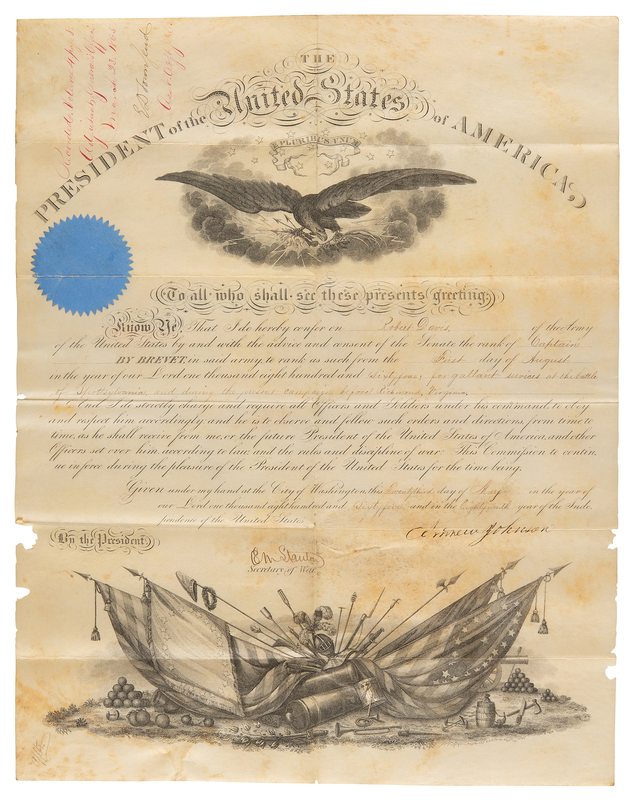 THE
United States
PRESIDENT of the of AMERICA,
E PLURIBUS UNUM
To all who shall see these presents greeting:
Know Ye, That I do hereby confer on Robert Davis, of the Army
of the United States by and with the advice and consent of the Senate the rank of Captain
BY BREVET, in said army, to rank as such from the First day of August
in the year of our Lord one thousand eight hundred and sixty four, for gallant services at the battle
of Spottsylvania and during the present campaign before Richmond, Virginia,
And I do strictly charge and require all Officers and Soldiers under his command, to obey
and respect him accordingly, and he is to observe and follow such orders and directions, from time to
time, as he shall receive from me, or the future President of the United States of America, and other
Officers set over him, according to law, and the rules and discipline of war. This Commission to contin-
ue in force during the pleasure of the President of the United States for the time being.
Given under my hand at the City of Washington, this day of May in the year of
our Lord one thousand eight hundred and sixty five and in the Eighty ninth year of the Inde-
pendence of the United States
Andrew Johnson
By the President,
E M Stanton
Secretary of War.